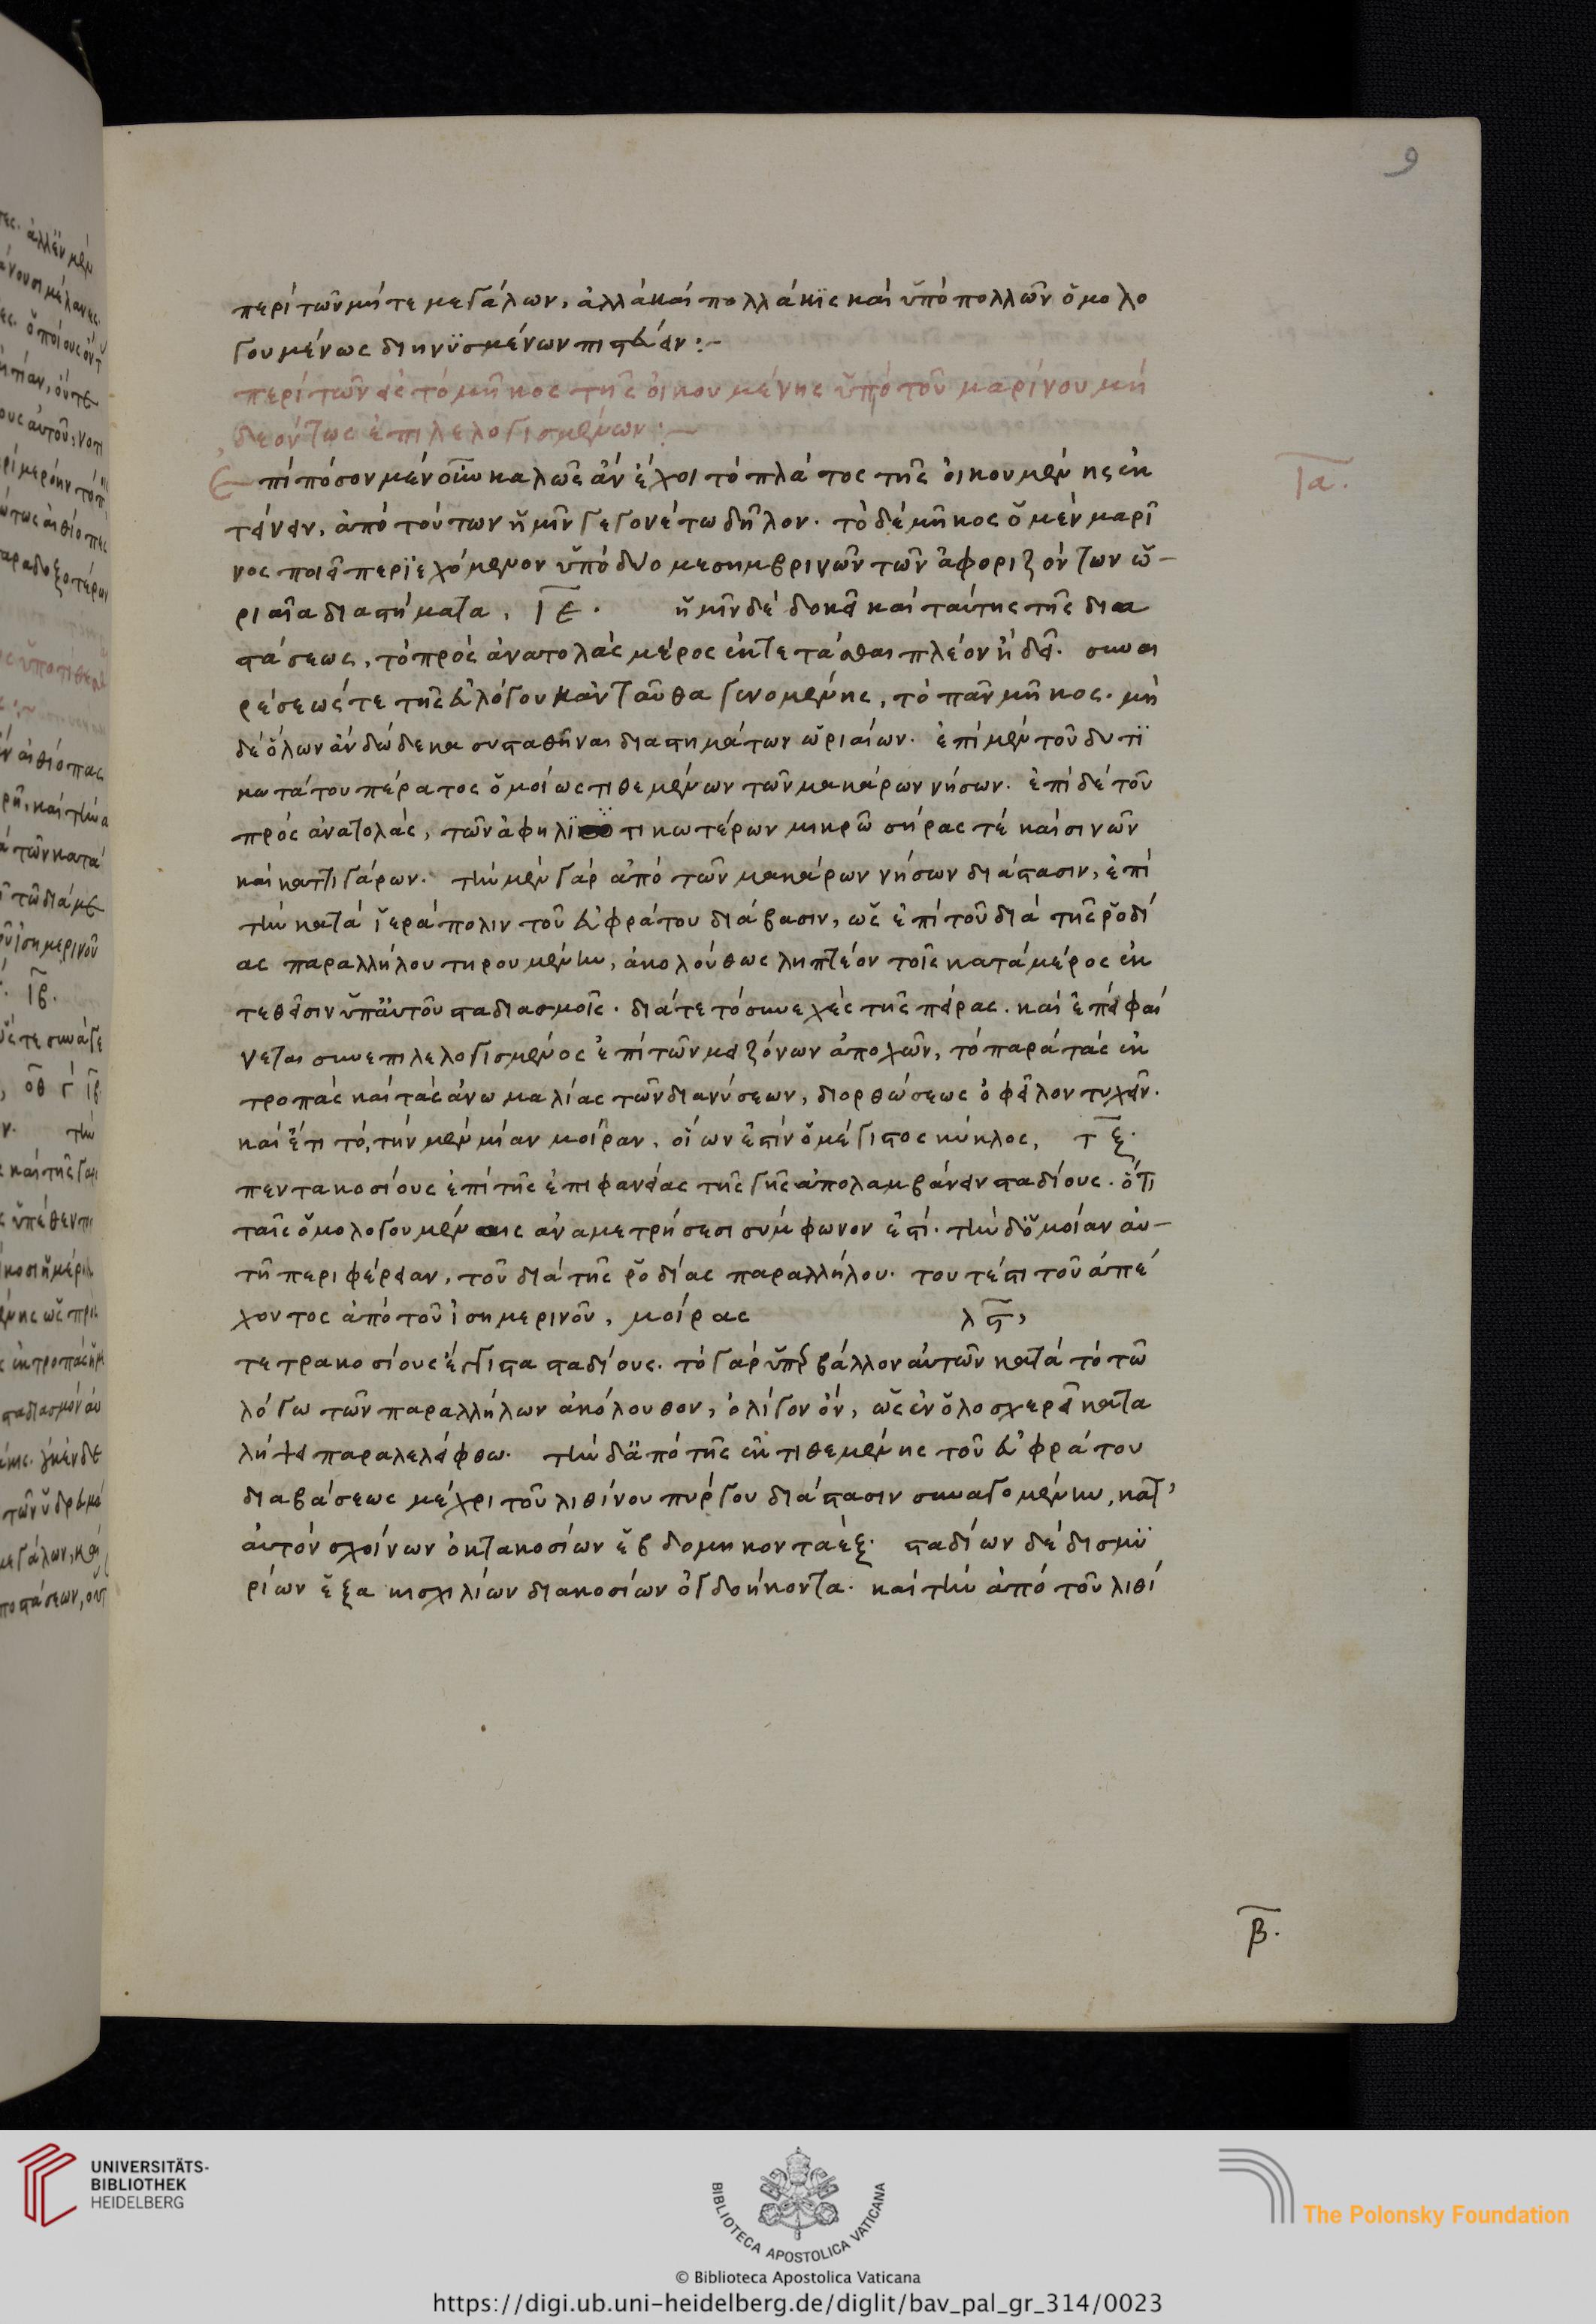 9
περὶ τῶν μήτε μεγάλων, ἀλλὰ καὶ πολλάκϊς καὶ ὑπὸ πολλῶν ὁμολο
γουμένως διηνϋσμένων πιστεύειν :-
περὶ τῶν εἰς τὸ μῆκος τῆς οἰκουμένης ὑπὸ τοῦ μαρίνου μὴ
δεόντως ἐπιλελογισμένων :-
Ἐπὶ πόσον μὲν οὖν καλῶς ἂν ἔχοι τὸ πλάτος τῆς οἰκουμένης ἐκ
τείνειν, ἀπὸ τούτων ἡμῖν γεγονέτω δῆλον. τὸ δὲ μῆκος ὁ μὲν μαρῖ
νος ποιεῖ περϊεχόμενον ὑπὸ δύο μεσημβρινῶν τῶν ἀφοριζόντων ὡ-
ριαῖα διαστήματα, ιε. ἡμῖν δὲ δοκεῖ καὶ ταύτης τῆς δια
στάσεως, τὸ πρὸς ἀνατολὰς μέρος ἐκτετάσθαι πλέον ἢ δεῖ. συναι
ρέσεώς τε τῆς εὐλόγου κἀνταῦθα γινομένης, τὸ πᾶν μῆκος. μὴ
δὲ ὅλων ἂν δώδεκα συσταθῆναι διαστημάτων ὡριαίων. ἐπὶ μὲν τοῦ δυτϊ
κωτάτου πέρατος ὁμοίως τιθεμένων τῶν μακάρων νήσων. ἐπὶ δὲ τοῦ
πρὸς ἀνατολὰς, τῶν ἀφηλϊ τικωτέρων μικρῶ σήρας τὲ καὶ σινῶν
καὶ καττιγάρων. τὴν μὲν γὰρ ἀπὸ τῶν μακάρων νήσων διάστασιν, ἐπὶ
τὴν κατὰ ἱεράπολιν τοῦ εὐφράτου διάβασιν, ὡς ἐπὶ τοῦ διὰ τῆς ῥοδί
ας παραλλήλου τηρουμένην, ἀκολούθως ληπτέον τοῖς κατὰ μέρος ἐκ
τεθεῖσιν ὑπ' αὐτοῦ σταδιασμοῖς. διά τε τὸ συνεχὲς τῆς πείρας. καὶ ἐπεὶ φαί
νεται συνεπιλελογισμένος ἐπὶ τῶν μειζόνων ἀποχῶν, τὸ παρὰ τὰς ἐκ
τροπὰς καὶ τὰς ἀνωμαλίας τῶν διανύσεων, διορθώσεως ὀφεῖλον τυχεῖν.
καὶ ἔτι τὸ, τὴν μὲν μίαν μοῖραν, οἵων ἐστὶν ὁ μέγιστος κύκλος, τξ.
πεντακοσίους ἐπὶ τῆς ἐπιφανείας τῆς γῆς ἀπολαμβάνειν σταδίους. ὅτι
ταῖς ὁμολογουμέναις ἀναμετρήσεσι σύμφωνον ἐστί. τὴν δ' ὁμοίαν αὐ-
τῆ περιφέρειαν, τοῦ διὰ τῆς ῥοδίας παραλλήλου. τουτέστι τοῦ ἀπέ
χοντος ἀπὸ τοῦ ἰσημερινοῦ, μοίρας λϛ,
τετρακοσίους ἔγγιστα σταδίους. τὸ γὰρ ὑπερβάλλον αὐτῶν κατὰ τὸ τῶ
λόγω τῶν παραλλήλων ἀκόλουθον, ὀλίγον ὂν, ὡς ἐν ὁλοσχερεῖ κατα
λήψει παραλελείφθω. τὴν δ' ἀπὸ τῆς ἐκτιθεμένης τοῦ εὐφράτου
διαβάσεως μέχρι τοῦ λιθίνου πύργου διάστασιν συναγομένην, κατ'
αὐτὸν σχοίνων ὀκτακοσίων ἑβδομηκονταέξ. σταδίων δὲ δισμϋ
ρίων ἑξακισχιλίων διακοσίων ὀγδοήκοντα. καὶ τὴν ἀπὸ τοῦ λιθί
ια.
β.
UNIVERSITÄTS-
BIBLIOTHEK
HEIDELBERG
BIBLIOTECA APOSTOLICA VATICANA
© Biblioteca Apostolica Vaticana
The Polonsky Foundation
https://digi.ub.uni-heidelberg.de/diglit/bav_pal_gr_314/0023